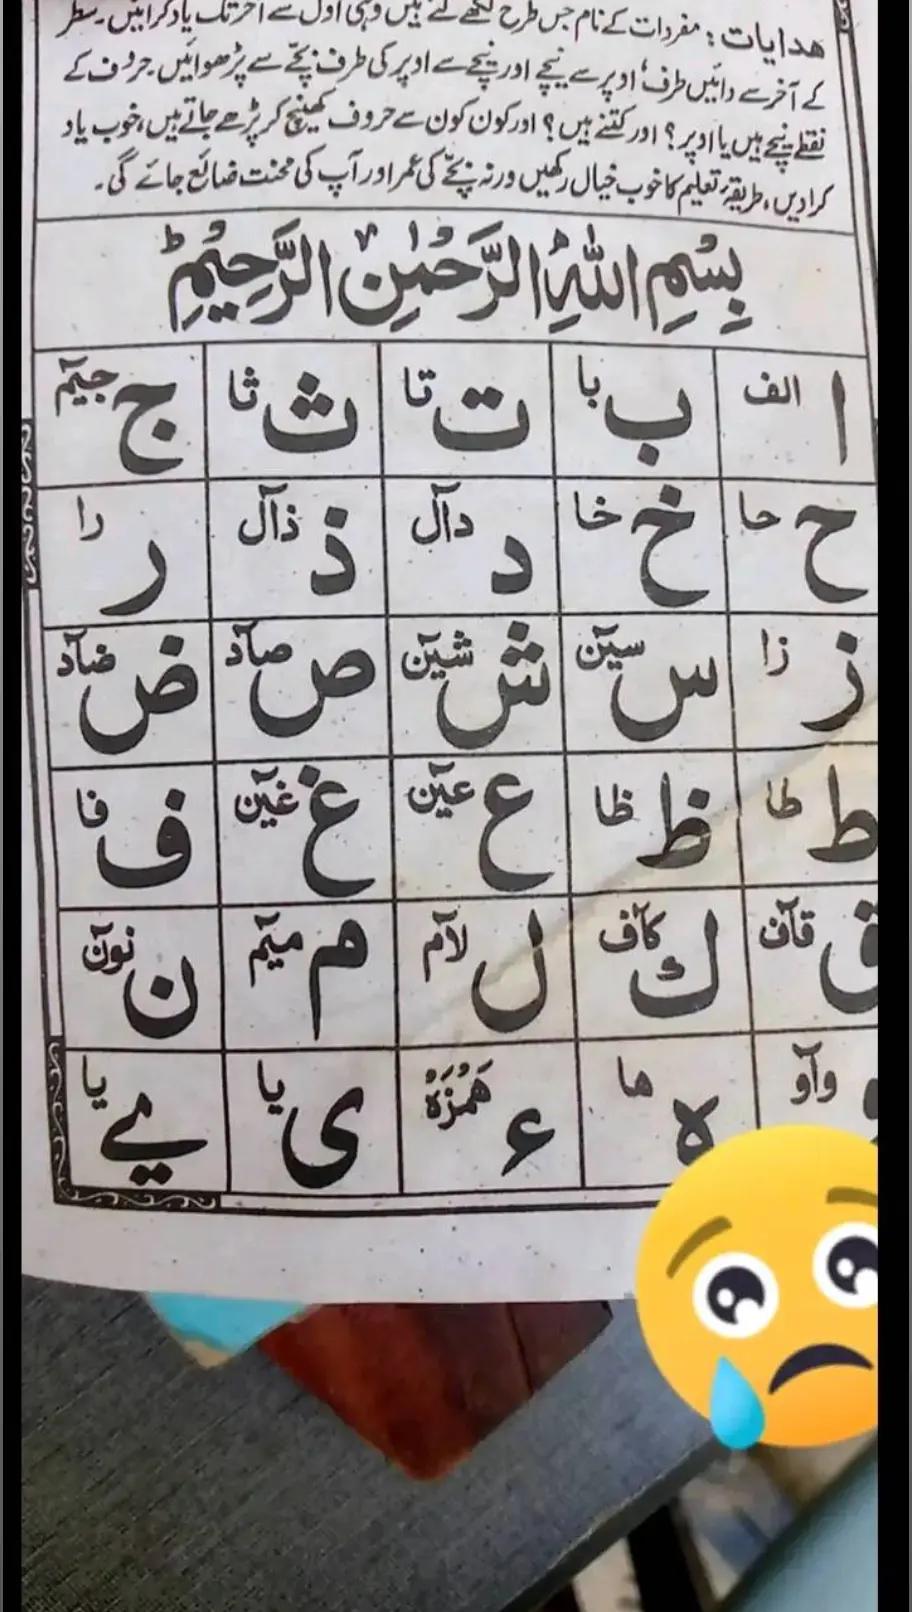 ھدایات: مفردات کے نام جس طرح لکھے گئے ہیں وہی اول سے آخر تک یاد کرائیں۔ سطر
کے آخر سے دائیں طرف، اوپر سے نیچے اور نیچے سے اوپر کی طرف بچّے سے پڑھوائیں۔ حروف کے
نقطے نیچے ہیں یا اوپر؟ اور کتنے ہیں؟ اور کون کون سے حروف کھینچ کر پڑھے جاتے ہیں، خوب یاد
کرادیں، طریقہ تعلیم کا خوب خیال رکھیں ورنہ بچّے کی عمر اور آپ کی محنت ضائع جائے گی۔
بِسْمِ اللّٰہِ الرَّحْمٰنِ الرَّحِیْمِ ط
ا الف ب با ت تا ث ثا ج جیٓم
ح حا خ خا د دآل ذ ذآل ر را
ز زا س سیٓن ش شیٓن ص صآد ض ضآد
ط طا ظ ظا ع عیٓن غ غیٓن ف فا
ق قآف ك كآف ل لآم م میٓم ن نوٓن
وآو ہ ھا ء ھَمْزَہْ ی یا ے یا